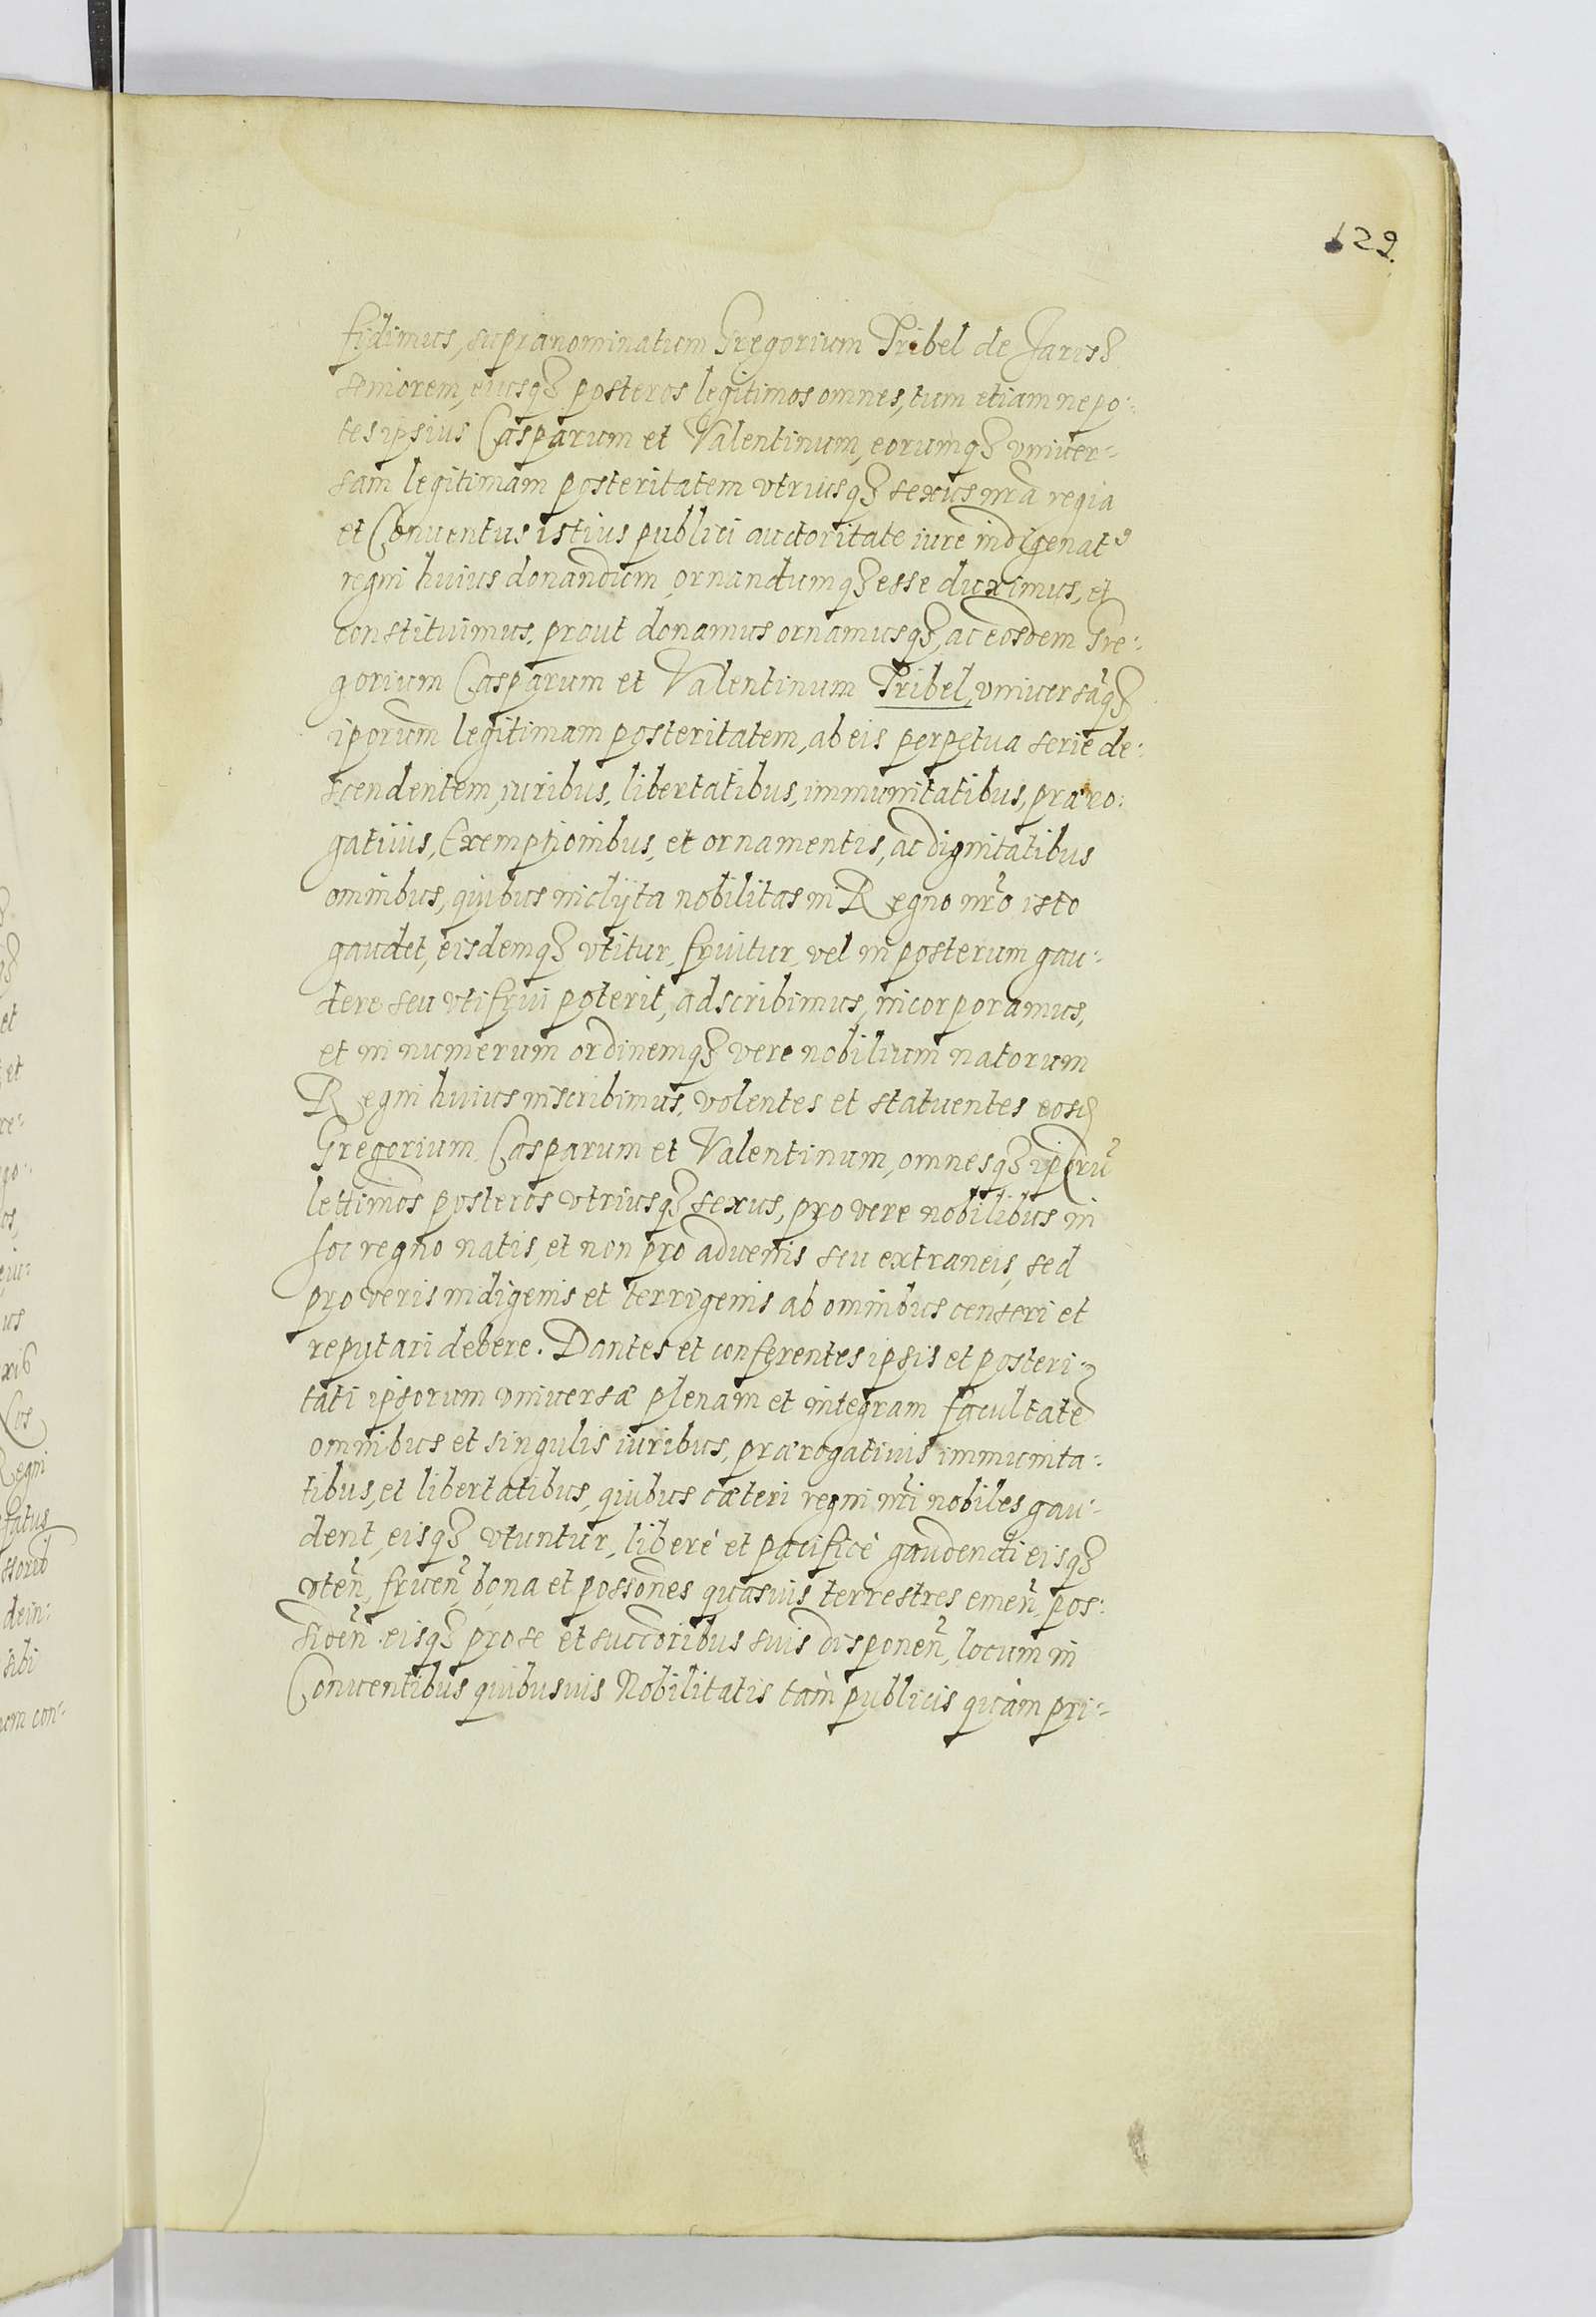 629.
fidimus, supranominatum Gregorium Tribel de
seniorem, eiusqȝ posteros legitimos omnes, tum etiam nepo:
tes ipsius Casparum et Valentinum, eorumqȝ vniuer-
sam legitimam posteritatem vtriusqȝ sexus nr̃a regia
et Conuentus istius publici auctoritate iure indigenatꝰ
regni huius donandum, ornandumqȝ esse duximus, et
constituimus, prout donamus ornamusqȝ, ac eosdem Gre:
gorium Casparum et Valentinum Tribel, vniuersãqȝ
ip̃orum legitimam posteritatem, ab eis perpetua serie de:
scendentem, iuribus, libertatibus, immunitatibus, præro:
gatiuis, Exemptionibus, et ornamentis, ac dignitatibus
omnibus, quibus inclÿta nobilitas in Regno nr̃o isto
gaudet, eisdemqȝ vtitur, fruitur, vel in posterum gau:
dere seu vti frui poterit, adscribimus, incorporamus,
et in numerum ordinemqȝ vere nobilium natorum
Regni huius inscribimus, volentes et statuentes eosd
Gregorium, Casparum et Valentinum, omnesqȝ ip̃orũ
lettimos posteros vtriusqȝ sexus, pro vere nobilibus in
hoc regno natis, et non pro aduenis seu extraneis, sed
pro veris indigenis et terrigenis ab omnibus censeri et
reputari debere. Dantes et conferentes ipsis et posteri-
tati ipsorum vniuersæ plenam et integram facultatẽ
omnibus et singulis iuribus, prærogatiuis immunita:
tibus, et libertatibus, quibus cæteri regni nr̃i nobiles gau:
dent, eisqȝ vtuntur, liberè et pacificè gaudendi eisqȝ
vten̄, fruen̄, bona et possões quasuis terrestres emen̄ pos:
siden̄ eisqȝ pro se et succoribus suis disponen̄, locum in
Conuentibus quibusuis Nobilitatis tàm publicis quàm pri-